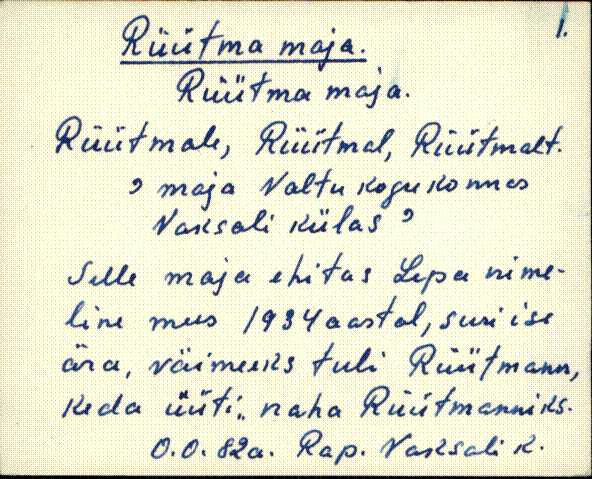 1.
Rüütma maja.
Rüütma maja.
Rüütmale, Rüütmal, Rüütmalt.
’ maja Valtu kogukonnas
Vaksali külas ’
Selle maja ehitas Lepa nime-
line mees 1934 aastal, suri ise
ära, väimeeks tuli Rüütmann,
keda üüti„ naha Rüütmanniks.
O.O. 82a. Rap. Vaksali k.